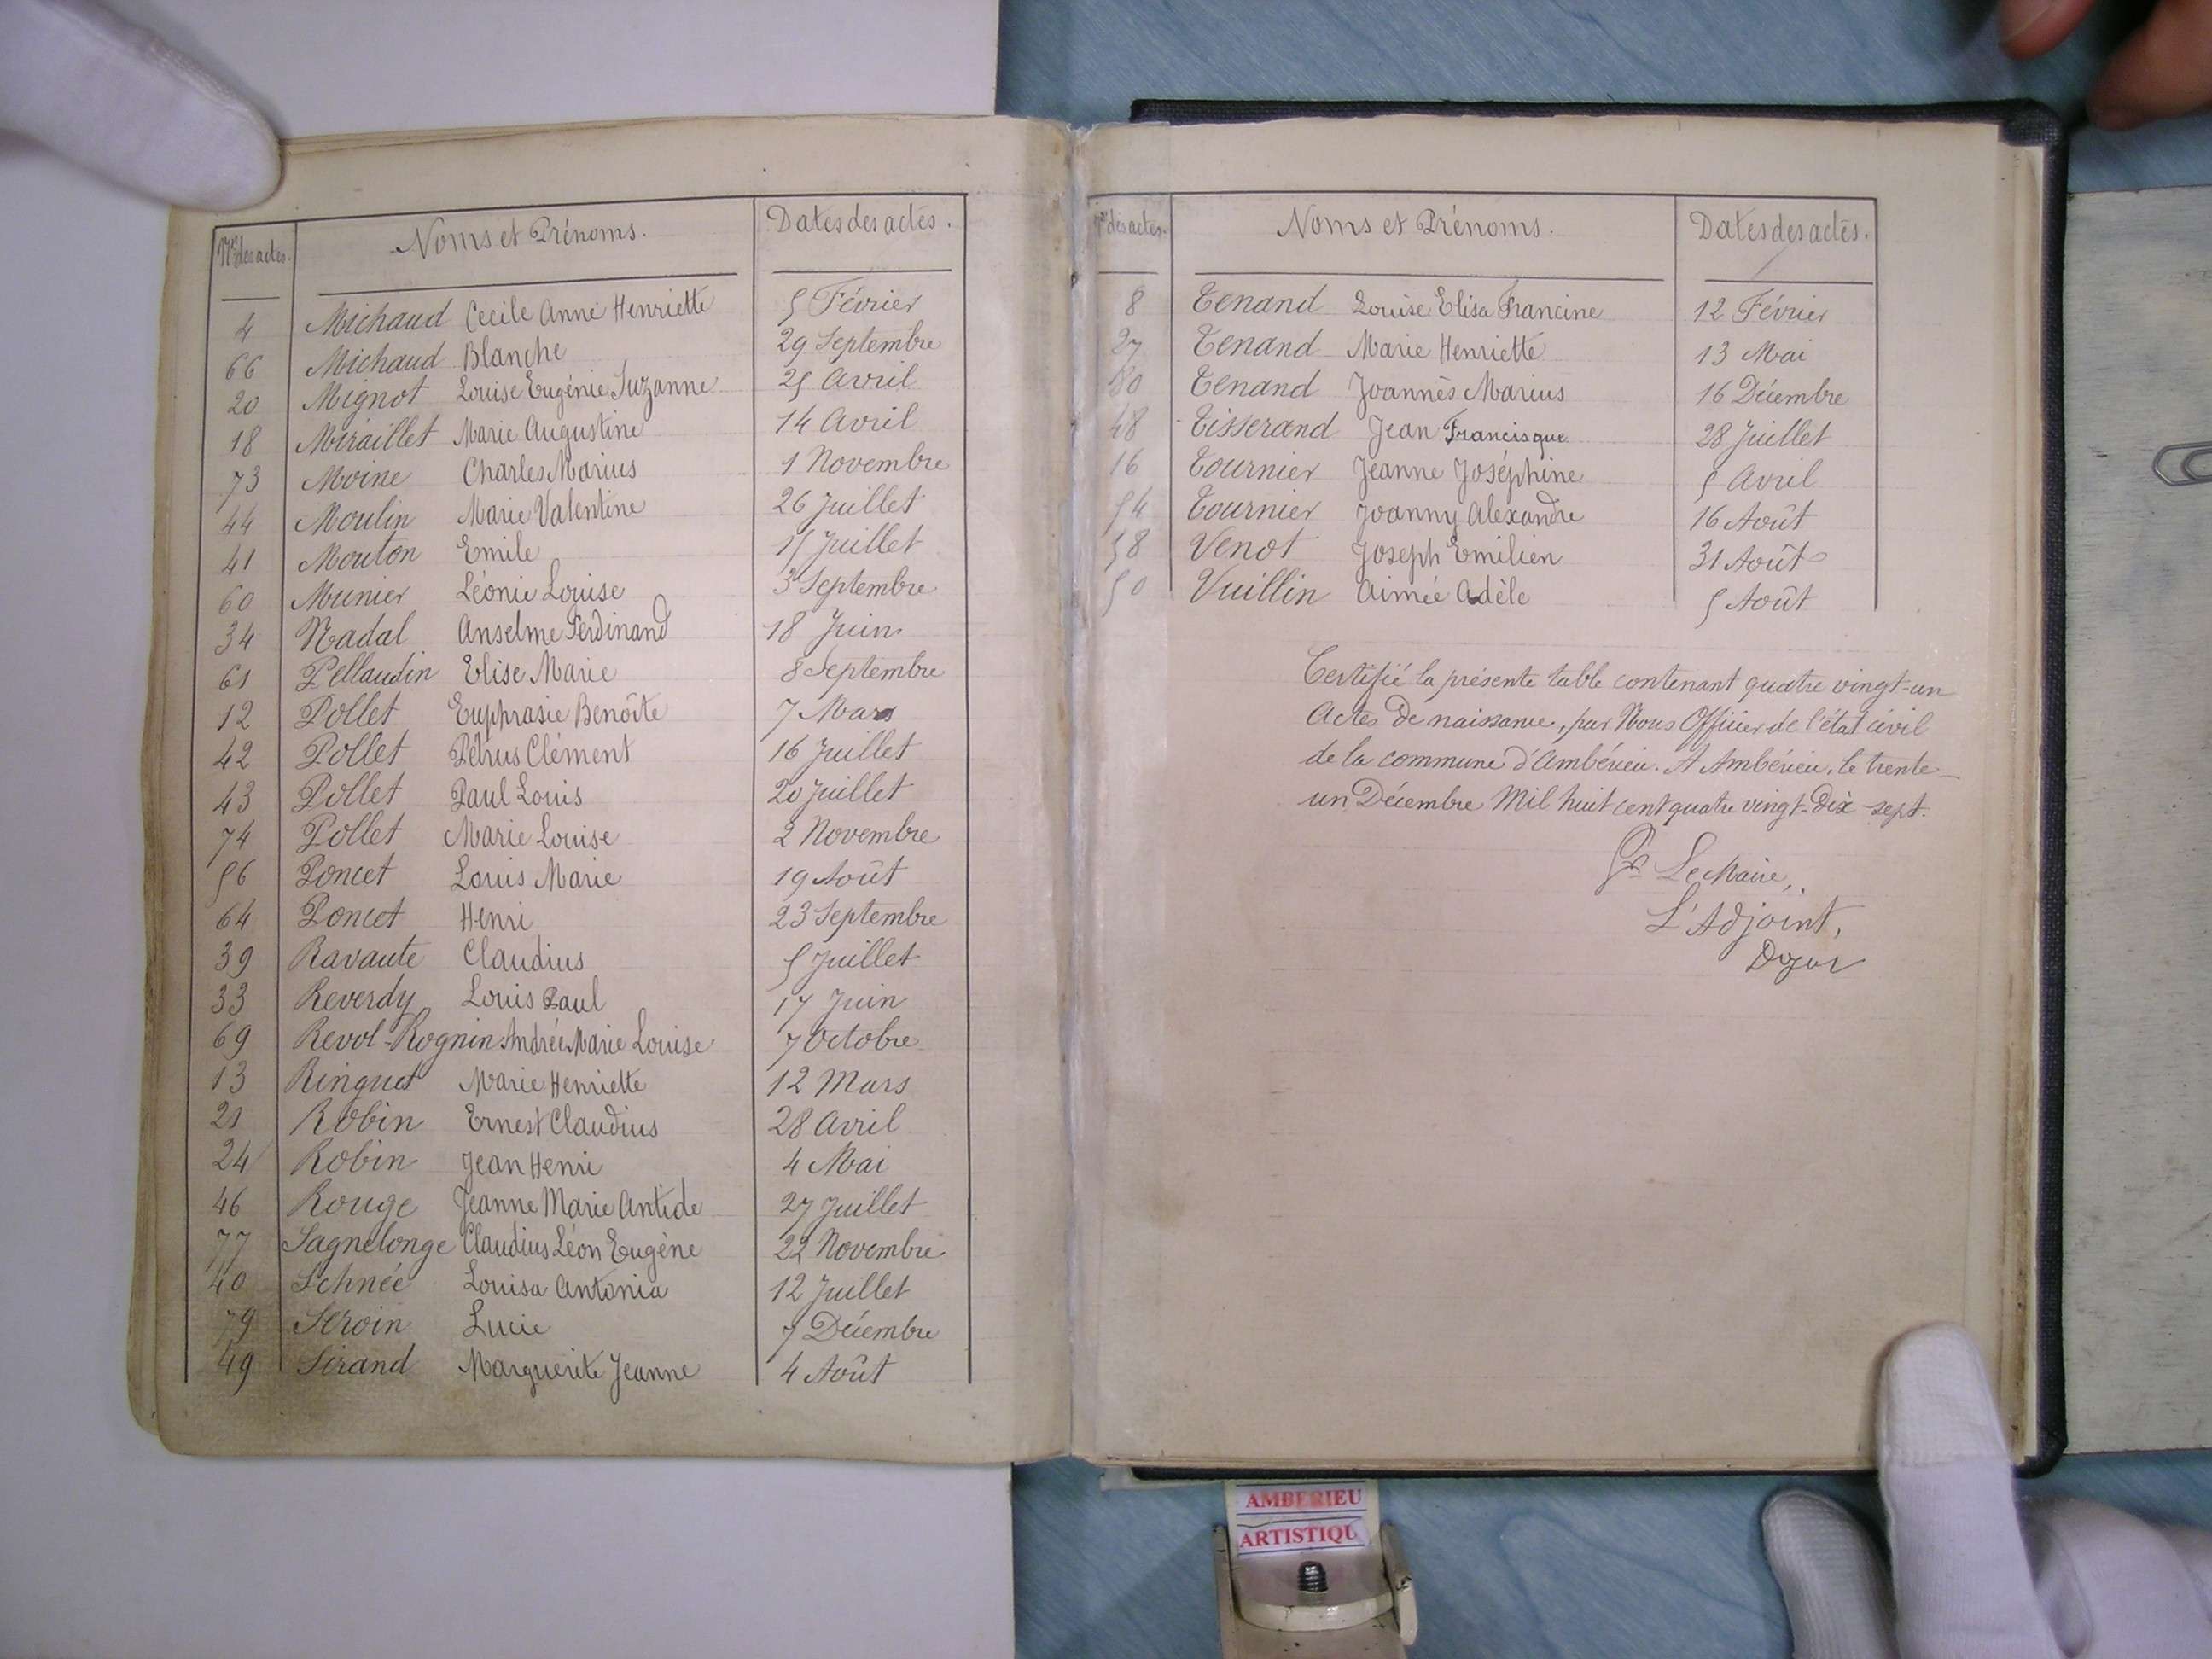 Nos des actes. Noms et Prénoms. Dates des actes.
4 Michaud Cecile Anne Henriette 5 Février
66 Michaud Blanche 29 Septembre
20 Mignot Louise Eugénie Suzanne 25 Avril
18 Miraillet Marie Augustine 14 Avril
73 Moine Charles Marius 1 Novembre
44 Moulin Marie Valentine 26 Juillet
41 Mouton Emile 15 Juillet
60 Munier Léonie Louise 3 Septembre
34 Nadal Anselme Ferdinand 18 Juin
61 Pellaudin Elise Marie 8 Septembre
12 Pollet Euphrasie Benoîte 7 Mars
42 Pollet Pétrus Clément 16 Juillet
43 Pollet Paul Louis 20 Juillet
74 Pollet Marie Louise 2 Novembre
56 Poncet Louis Marie 19 Août
64 Poncet Henri 23 Septembre
39 Ravaute Claudius 5 Juillet
33 Reverdy Louis Paul 17 Juin
69 Revol-Rognin Andrée Marie Louise 7 Octobre
13 Ringuet Marie Henriette 12 Mars
21 Robin Ernest Claudius 28 Avril
24 Robin Jean Henri 4 Mai
46 Rouge Jeanne Marie Antide 27 Juillet
77 Sagnelonge Claudius Léon Eugène 22 Novembre
40 Schnée Louisa Antonia 12 Juillet
79 Seroin Lucie 7 Décembre
49 Sirand Marguerite Jeanne 4 Août
Nos des actes. Noms et Prénoms. Dates des actes.
8 Tenand Louise Elisa Francine 12 Février
27 Tenand Marie Henriette 13 Mai
80 Tenand Joannès Marius 16 Décembre
48 Tisserand Jean Francisque 28 Juillet
16 Tournier Jeanne Joséphine 5 Avril
54 Tournier Joanny Alexandre 16 Août
58 Venot Joseph Emilien 31 Août
50 Vuillin Aimée Adèle 5 Août
Certifié la présente table contenant quatre vingt-un
Actes de naissance, par Nous Officier de l'état civil
de la commune d'Ambérieu. A Ambérieu, le trente-
un Décembre Mil huit cent quatre vingt-dix-sept.
Pr Le Maire,
L'Adjoint,
AMBERIEU
ARTISTIQU